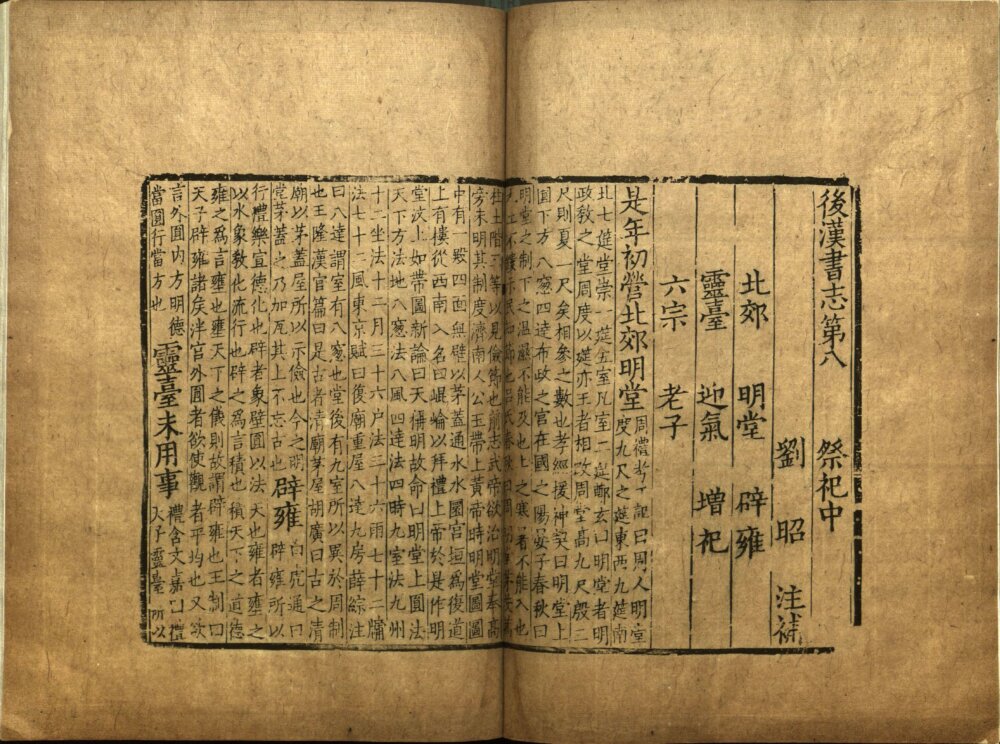 後漢書志第八　祭祀中
劉昭　注補
北郊　明堂　辟雍
靈臺　迎氣　增祀
六宗　老子
是年初營北郊明堂 周禮考工記曰周人明堂
度九尺之筵東西九筵南
北七筵堂崇一筵五室凡室二筵鄭玄曰明堂者明
政教之堂周度以筵亦王者相改周堂高九尺殷三
尺則夏一尺矣相參之數也孝經援神契曰明堂上
圓下方八窻四達布政之宮在國之陽晏子春秋曰
明堂之制下之温溼不能及也上之寒暑不能入也
木工不鏤示民知節也吕氏春秋曰周明堂茅茨蒿
柱土階三等以見儉節也前志武帝欲治明堂奉高
旁未明其制度濟南人公玉帶上黃帝時明堂圖圖
中有一殿四面無壁以茅蓋通水水圜宮垣為復道
上有樓從西南入名曰崐崘以拜禮上帝於是作明
堂汶上如帶圖新論曰天稱明故命曰明堂上圓法
天下方法地八窻法八風四達法四時九室法九州
十二坐法十二月三十六戶法三十六雨七十二牖
法七十二風東京賦曰復廟重屋八達九房薛綜注
曰八達謂室有八窻也堂後有九室所以異於周制
也王隆漢官篇曰是古者清廟茅屋胡廣曰古之清
廟以茅蓋屋所以示儉也今之明
堂茅蓋之乃加瓦其上不忘古也 辟雍 白虎通曰
辟雍所以
行禮樂宣德化也辟者象璧圓以法天也雍者壅之
以水象教化流行也辟之為言積也積天下之道德
雍之為言壅也壅天下之儀則故謂辟雍也王制曰
天子辟雍諸侯泮宮外圓者欲使觀者平均也又欲
言外圓内方明德
當圓行當方也 靈臺未用事 禮含文嘉曰禮
天子靈臺所以